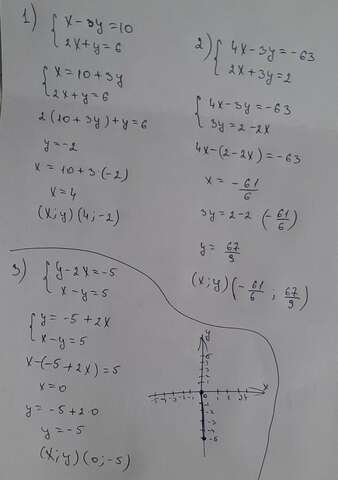 1) { x - 3y = 10
2x + y = 6
{ x = 10 + 3y
2x + y = 6
2(10 + 3y) + y = 6
y = -2
x = 10 + 3(-2)
x = 4
(x; y) (4; -2)
2) { 4x - 3y = -63
2x + 3y = 2
{ 4x - 3y = -63
3y = 2 - 2x
4x - (2 - 2x) = -63
x = -61/6
3y = 2 - 2 · (-61/6)
y = 67/9
(x; y) (-61/6 ; 67/9)
3) { y - 2x = -5
x - y = 5
{ y = -5 + 2x
x - y = 5
x - (-5 + 2x) = 5
x = 0
y = -5 + 2 · 0
y = -5
(x; y) (0; -5)
y
x
0
-5